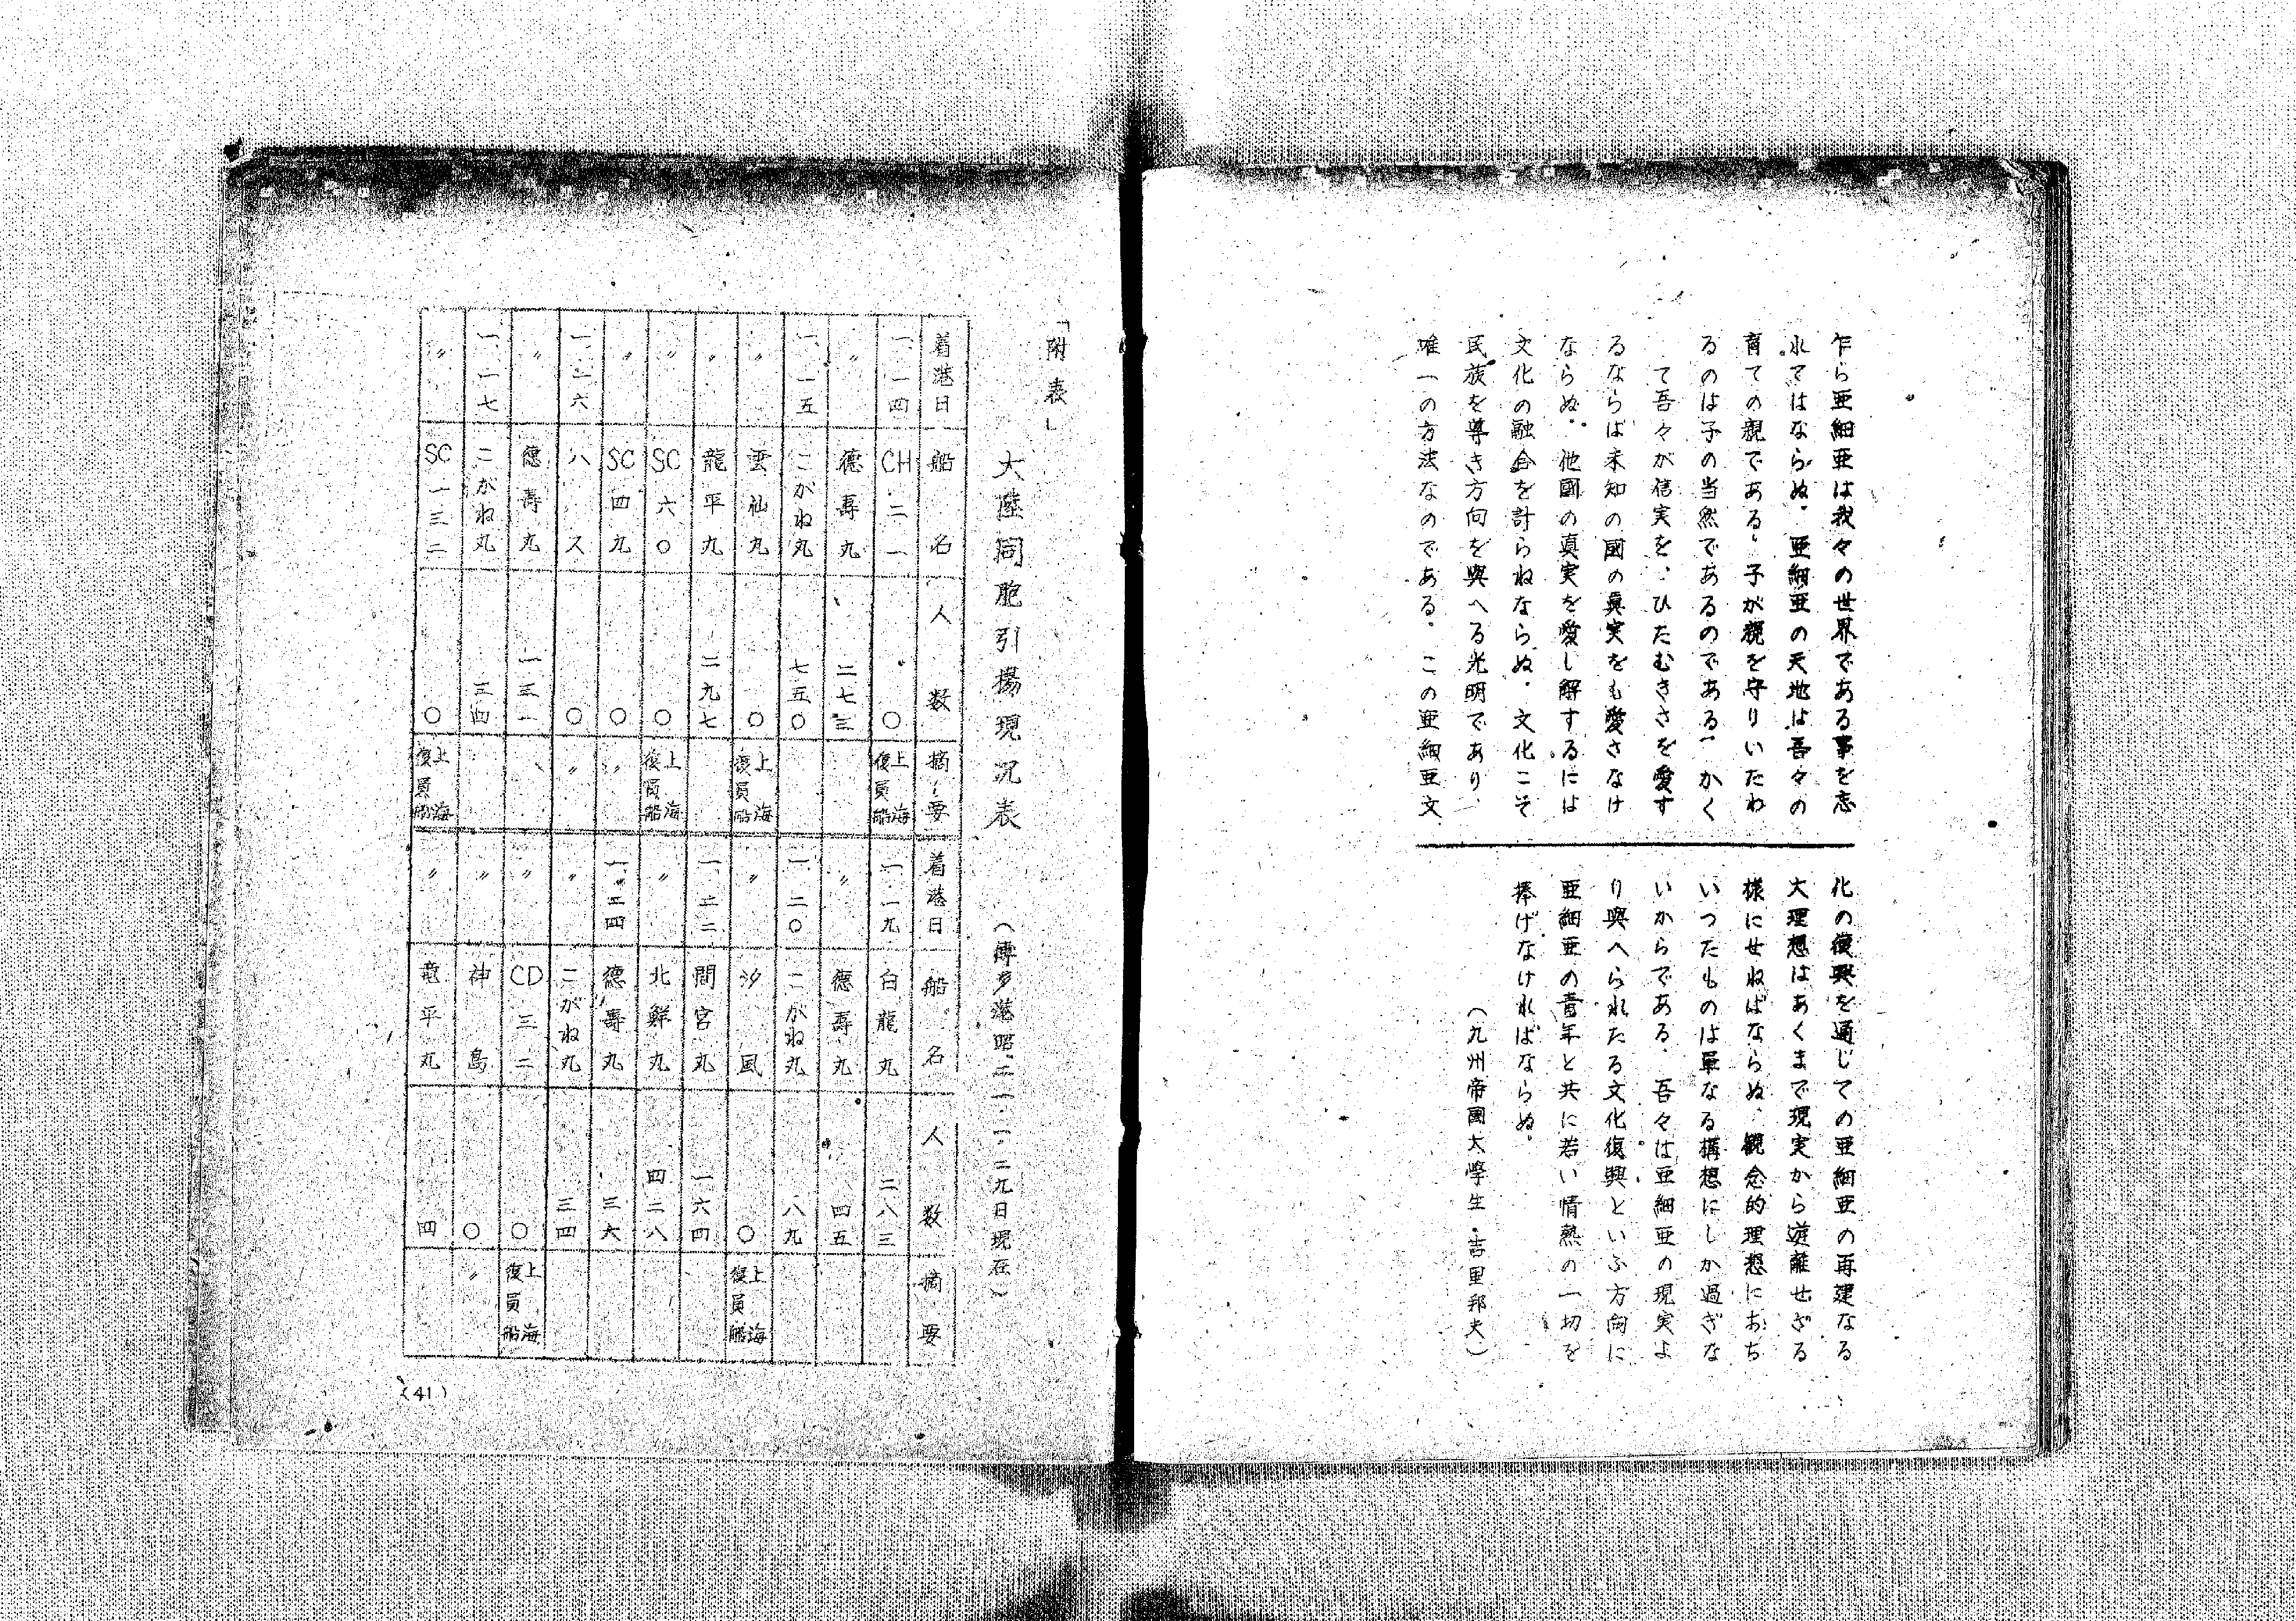 乍ら亜細亜は我々の世界である事を忘
れてはならぬ。亜細亜の天地は吾々の
育ての親である。子が親を守りいたわ
るのは子の当然であるのである。かく
て吾々が信実を、ひたむきさを愛す
るならば未知の國の真実をも愛さなけ
ならぬ。他國の真実を愛し解するには
文化の融合を計らねならぬ。文化こそ
民族を導き方向を與へる光明であり、
唯一の方法なのである。この亜細亜文
化の復興を通じての亜細亜の再建なる
大理想はあくまで現実から遊離せざる
様にせねばならぬ、観念的理想におち
いつたものは単なる構想にしか過ぎな
いからである。吾々は亜細亜の現実よ
り與へられたる文化復興といふ方向に
亜細亜の青年と共に若い情熱の一切を
捧げなければならぬ。
（九州帝國大學生・吉里邦夫）
「附表」
大陸同胞引揚現況表　（博多港昭二一・一・二九日現在）
着港日　船名　人数　摘要
一、一四　CH二一　〇　上海復員船
〃　徳壽丸　二七三
一、一五　こがね丸　七五〇
〃　雲仙丸　〇　上海復員船
〃　龍平丸　二九七
〃　SC六〇　〇　上海復員船
〃　SC四九　〇　〃
一、一六　ハハス　〇　〃
〃　徳壽丸　一三一
一、一七　こがね丸　三四
〃　SC一三二　〇　上海復員船
着港日　船名　人数　摘要
一、一九　白龍丸　二八三
〃　徳壽丸　四五
一、二〇　こがね丸　八九
〃　汐風　〇　上海復員船
一、二二　間宮丸　一六四
〃　北鮮丸　四二八
一、二四　徳壽丸　三六
〃　こがね丸　三四
〃　CD三二　〇　上海復員船
〃　神島　〇　〃
〃　竜平丸　四
（41）